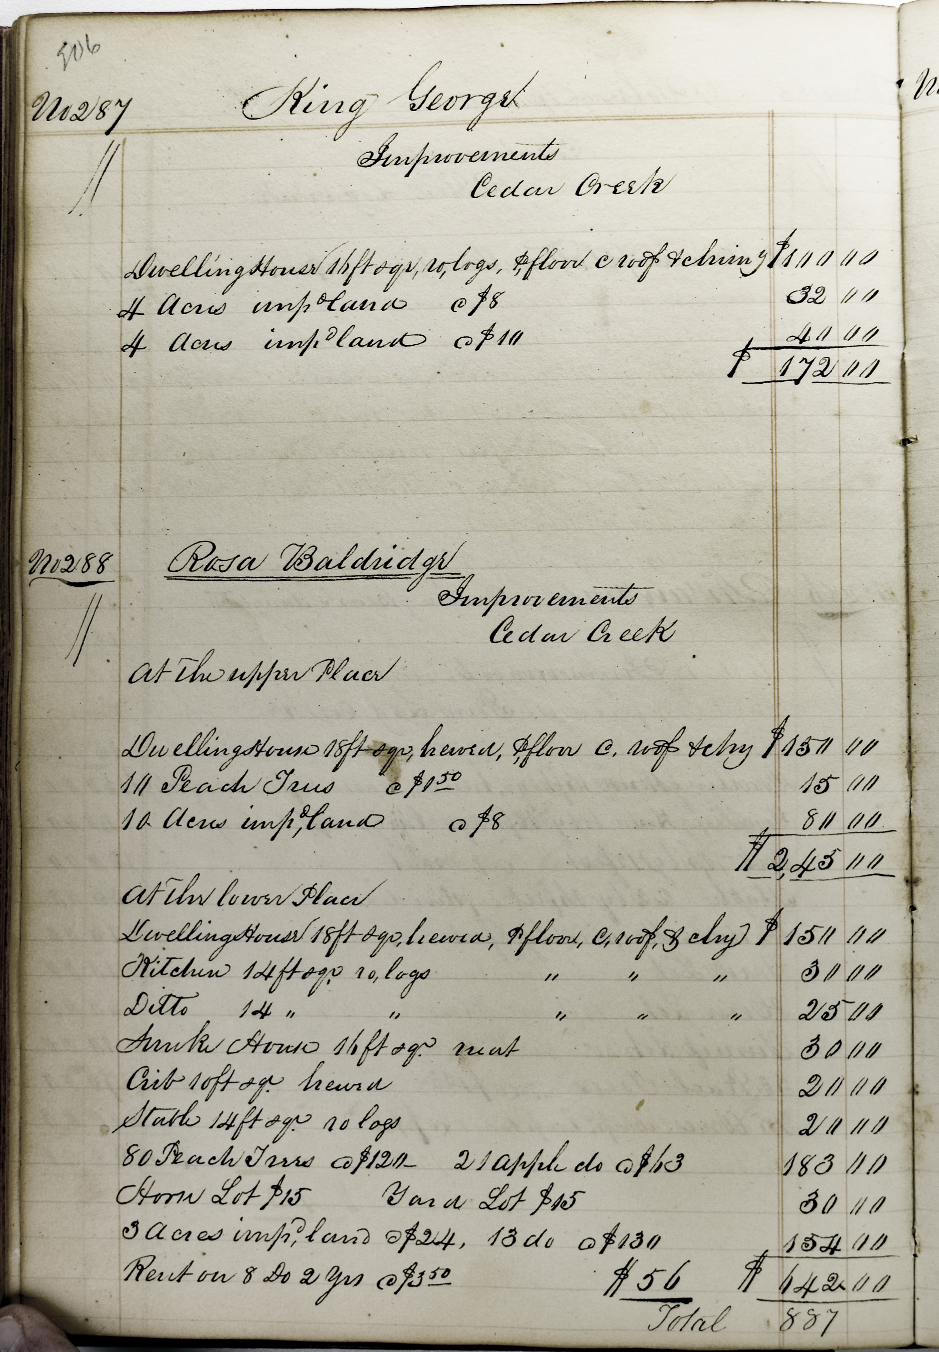 306
No 287 King George
Improvements
Cedar Creek
Dwelling House 16 ft sqr, ro, logs, P, floor c roof & chimy $100 00
4 Acres imp.d land c $8 32 00
4 Acres imp.d land c $10 40 00
$ 172 00
No 288 Rosa Baldridge
Improvements
Cedar Creek
At The upper Place
Dwelling House 18 ft sqr, hewed, P, floor c. roof & chy $150 00
10 Peach Trees c $1 50 15 00
10 Acres imp.d, land c $8 80 00
$ 2,45 00
At the lower Place
Dwelling House 18 ft sqr, hewed, P floor, c, roof, & chy $ 150 00
Kitchen 14 ft sqr. ro, logs " " " 30 00
Ditto 14 " " " " " 25 00
Smoke House 16 ft sqr. neat 30 00
Crib 10 ft sqr. hewed 20 00
Stable 14 ft sqr ro logs 20 00
80 Peach Trees c $120 21 apple do c $63 183 00
Horse Lot $15 Yard Lot $15 30 00
3 Acres imp.d, land c $24, 13 do c $130 154 00
Rent on 8 Do 2 Yrs c $3 50 $56 $ 642 00
Total 887